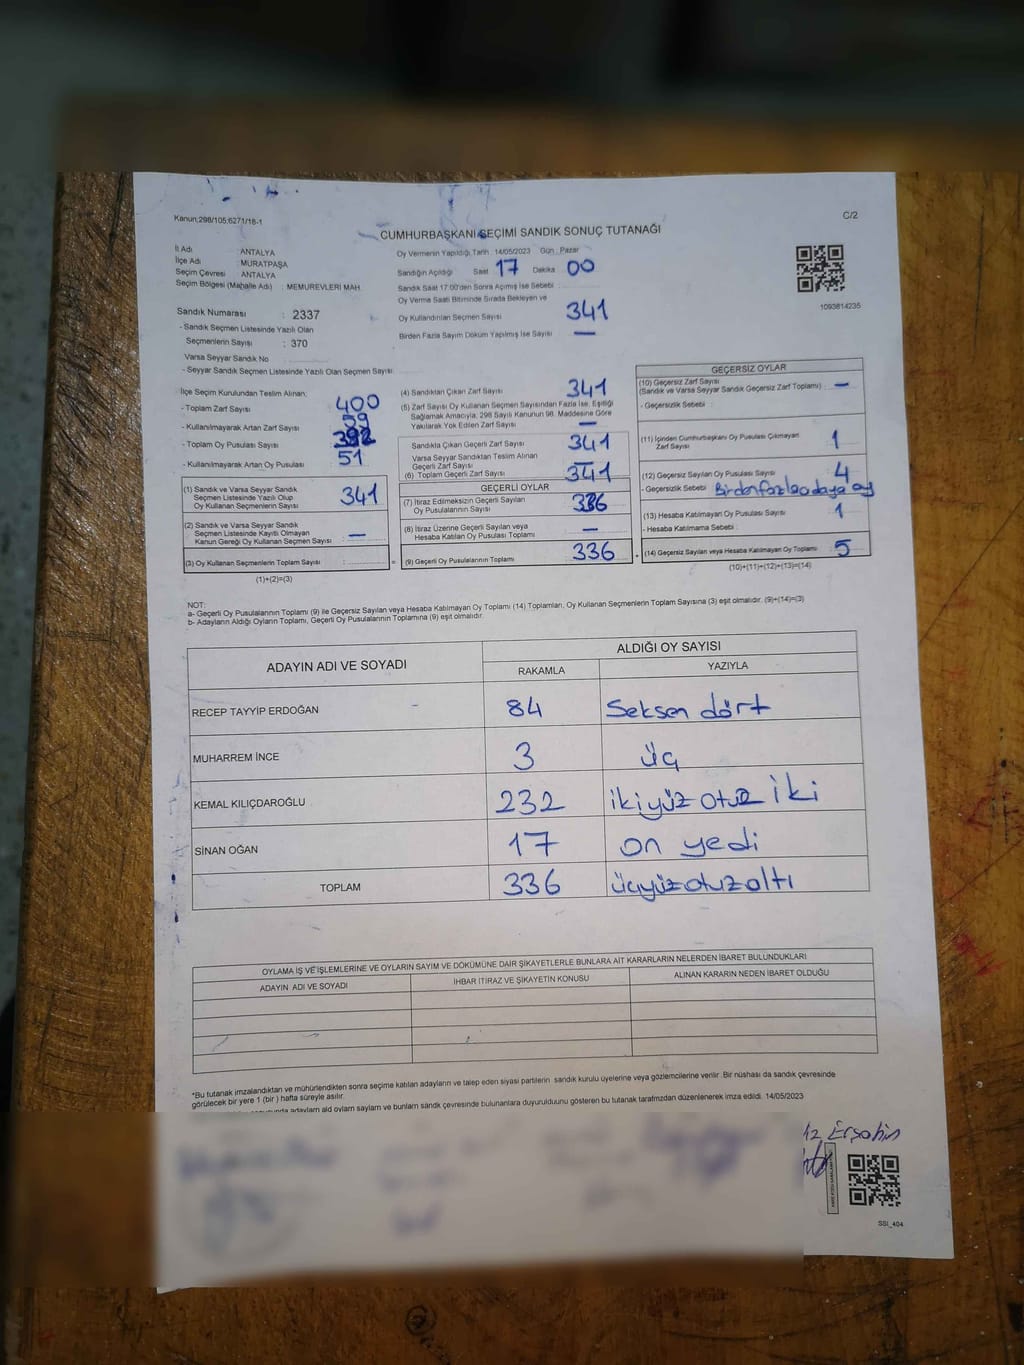 Kanun;298/105;6271/18-1
C/2
CUMHURBAŞKANI SEÇİMİ SANDIK SONUÇ TUTANAĞI
İl Adı ANTALYA
İlçe Adı MURATPAŞA
Seçim Çevresi ANTALYA
Seçim Bölgesi (Mahalle Adı) : MEMUREVLERİ MAH.
Sandık Numarası : 2337
- Sandık Seçmen Listesinde Yazılı Olan
Seçmenlerin Sayısı : 370
Varsa Seyyar Sandık No
- Seyyar Sandık Seçmen Listesinde Yazılı Olan Seçmen Sayısı
Oy Vermenin Yapıldığı Tarih : 14/05/2023 Gün : Pazar
Sandığın Açıldığı Saat 17 Dakika 00
Sandık Saat 17:00'den Sonra Açılmış İse Sebebi
Oy Verme Saati Bitiminde Sırada Bekleyen ve
Oy Kullandırılan Seçmen Sayısı 341
Birden Fazla Sayım Döküm Yapılmış İse Sayısı —
1093814235
İlçe Seçim Kurulundan Teslim Alınan;
- Toplam Zarf Sayısı 400
- Kullanılmayarak Artan Zarf Sayısı 59
- Toplam Oy Pusulası Sayısı 392
- Kullanılmayarak Artan Oy Pusulası 51
(1) Sandık ve Varsa Seyyar Sandık
Seçmen Listesinde Yazılı Olup
Oy Kullanan Seçmenlerin Sayısı 341
(2) Sandık ve Varsa Seyyar Sandık
Seçmen Listesinde Kayıtlı Olmayan
Kanun Gereği Oy Kullanan Seçmen Sayısı —
(3) Oy Kullanan Seçmenlerin Toplam Sayısı
(1)+(2)=(3)
(4) Sandıktan Çıkan Zarf Sayısı 341
(5) Zarf Sayısı Oy Kullanan Seçmen Sayısından Fazla İse, Eşitliği
Sağlamak Amacıyla, 298 Sayılı Kanunun 98. Maddesine Göre
Yakılarak Yok Edilen Zarf Sayısı —
Sandıkta Çıkan Geçerli Zarf Sayısı 341
Varsa Seyyar Sandıktan Teslim Alınan
Geçerli Zarf Sayısı —
(6) Toplam Geçerli Zarf Sayısı 341
GEÇERLİ OYLAR
(7) İtiraz Edilmeksizin Geçerli Sayılan
Oy Pusulalarının Sayısı 336
(8) İtiraz Üzerine Geçerli Sayılan veya
Hesaba Katılan Oy Pusulası Toplamı —
(9) Geçerli Oy Pusulalarının Toplamı 336
GEÇERSİZ OYLAR
(10) Geçersiz Zarf Sayısı
(Sandık ve Varsa Seyyar Sandık Geçersiz Zarf Toplamı) —
- Geçersizlik Sebebi :
(11) İçinden Cumhurbaşkanı Oy Pusulası Çıkmayan
Zarf Sayısı 1
(12) Geçersiz Sayılan Oy Pusulası Sayısı 4
- Geçersizlik Sebebi : Birden fazla adaya oy
(13) Hesaba Katılmayan Oy Pusulası Sayısı 1
- Hesaba Katılmama Sebebi :
(14) Geçersiz Sayılan veya Hesaba Katılmayan Oy Toplamı 5
(10)+(11)+(12)+(13)=(14)
NOT:
a- Geçerli Oy Pusulalarının Toplamı (9) ile Geçersiz Sayılan veya Hesaba Katılmayan Oy Toplamı (14) Toplamları, Oy Kullanan Seçmenlerin Toplam Sayısına (3) eşit olmalıdır. (9)+(14)=(3)
b- Adayların Aldığı Oyların Toplamı, Geçerli Oy Pusulalarının Toplamına (9) eşit olmalıdır.
ADAYIN ADI VE SOYADI ALDIĞI OY SAYISI
RAKAMLA YAZIYLA
RECEP TAYYİP ERDOĞAN 84 Seksen dört
MUHARREM İNCE 3 üç
KEMAL KILIÇDAROĞLU 232 ikiyüz otuz iki
SİNAN OĞAN 17 on yedi
TOPLAM 336 üçyüzotuzaltı
OYLAMA İŞ VE İŞLEMLERİNE VE OYLARIN SAYIM VE DÖKÜMÜNE DAİR ŞİKAYETLERLE BUNLARA AİT KARARLARIN NELERDEN İBARET BULUNDUKLARI
ADAYIN ADI VE SOYADI İHBAR İTİRAZ VE ŞİKAYETİN KONUSU ALINAN KARARIN NEDEN İBARET OLDUĞU
*Bu tutanak imzalandıktan ve mühürlendikten sonra seçime katılan adayların ve talep eden siyasi partilerin sandık kurulu üyelerine veya gözlemcilerine verilir. Bir nüshası da sandık çevresinde
görülecek bir yere 1 (bir ) hafta süreyle asılır.
adayların ald oyların sayların ve bunların sandık çevresinde bulunanlara duyurulduunu gösteren bu tutanak tarafmzdan düzenlenerek imza edildi. 14/05/2023
Erşahin
SSI_404